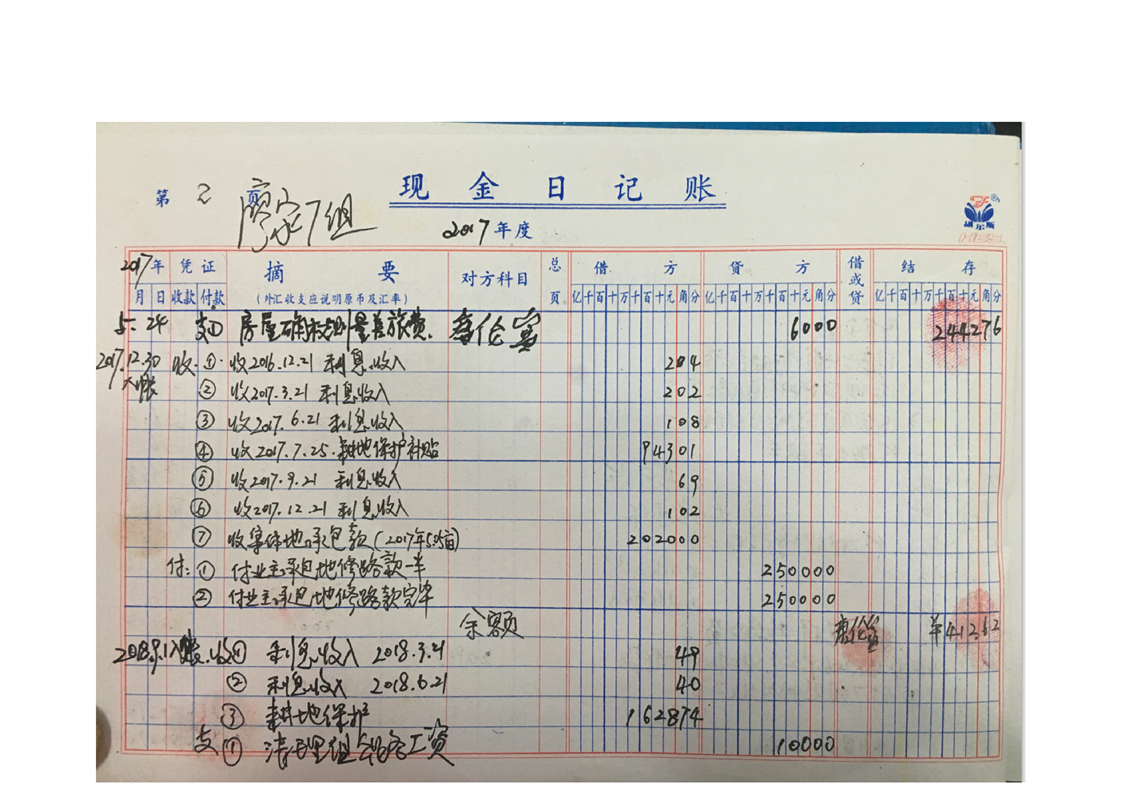 现金日记账
第 2 页
廖家7组
2017 年度
2017 年 凭证 摘要 对方科目 总页 借方 贷方 借或贷 结存
月 日 收款 付款 (外汇收支应说明原币及汇率) 亿千百十万千百十元角分 亿千百十万千百十元角分 亿千百十万千百十元角分
5. 24 支① 房屋确权 量差旅费. 6000 244276
2017.12.30 收 ①. 收2016.12.21 利息收入 204
入账 ② 收2017.3.21 利息收入 202
③ 收2017.6.21 利息收入 108
④ 收2017.7.25.耕地保护补贴 94301
⑤ 收2017.9.21 利息收入 69
⑥ 收2017.12.21 利息收入 102
⑦ 收集体地承包款(2017年5.05亩) 202000
付: ① 付业主承包地修路款一半 250000
② 付业主承包地修路款完毕 250000
余额 ¥41262
2018.9.1入账.收① 利息收入 2018.3.21 49
② 利息收入 2018.6.21 40
③ 耕地保护 162874
支① 清理组 工资 10000